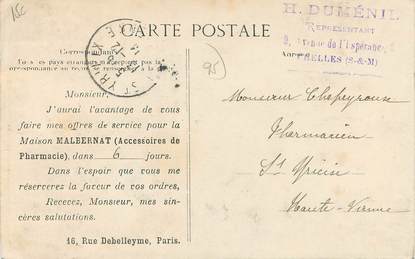 15c
CARTE POSTALE
H. DUMÉNIL
REPRÉSENTANT
Avenue de l'Espérance,
CHELLES (S-&-M)
Correspondance
Tous les pays étrangers n'acceptent pas la
correspondance au recto.
95
ST YRIEIX
Monsieur,
J'aurai l'avantage de vous
faire mes offres de service pour la
Maison MALBERNAT (Accessoires de
Pharmacie), dans 6 jours.
Dans l'espoir que vous me
réserverez la faveur de vos ordres,
Recevez, Monsieur, mes sin-
cères salutations.
16, Rue Debelleyme, Paris.
Monsieur Chapeyroux
Pharmacien
St Yrieix
Haute-Vienne